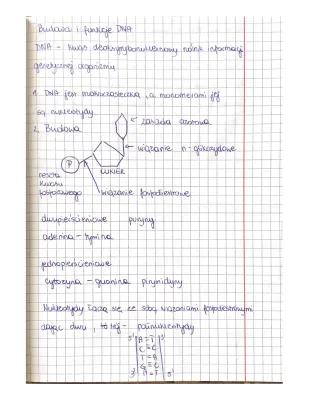 Budowa i funkcje DNA
DNA - kwas deoksyrybonukleinowy nośnik informacji
genetycznej organizmu
1. DNA jest makrocząsteczką, a monomerami jej
są nukleotydy
2. Budowa
zasada azotowa
wiązanie n-glikozydowe
P
CUKIER
reszta
kwasu
fosforowego
wiązanie fosfodiestrowe
dwupierścieniowe puryny
adenina - tymina
jednopierścieniowe
cytozyna - guanina pirymidyny
Nukleotydy łączą się ze sobą wiązaniami fosfodiestrowymi
dając dwu, to tej - polinukleotydy
5' A = T 3'
T = A
3'
5'